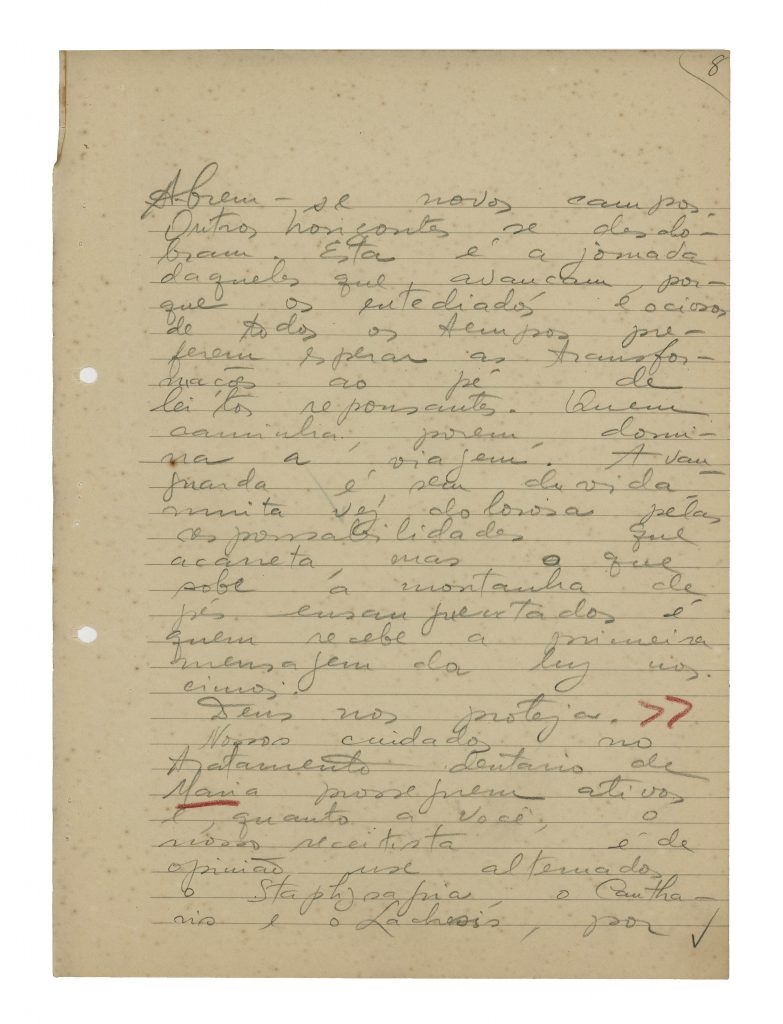 8
Abrem-se novos campos.
Outros horisontes se desdo-
bram. Esta é a jornada
daqueles que avancam, por-
que os entediados e ociosos
de todos os tempos pre-
ferem esperar as transfor-
mações ao pé de
leitos reponsantes. Quem
caminha, porem, domi-
na a viagem. A van-
guarda é, sem duvida,
muita vez dolorosa pelas
responsabilidades que
acarreta, mas o que
sobe a montanha de
pés ensanguentados é
quem recebe a primeira
mensagem da luz nos
cimos.
Deus nos proteja. >>
Nossos cuidados no
tratamento dentario de
Maria prosseguem ativos
e, quanto a você, o
nosso receitista é de
opinião use alternados
o Staphysagria, o Cantha-
ris e o Lachesis, por